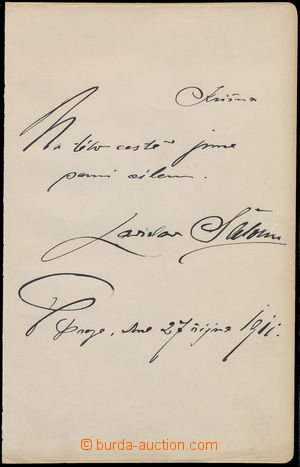 Krišna
Na této cestě jsme
sami sílem.
Ladislav Šaloun
V Praze, dne 27 října 1911.
© burda-auction.com